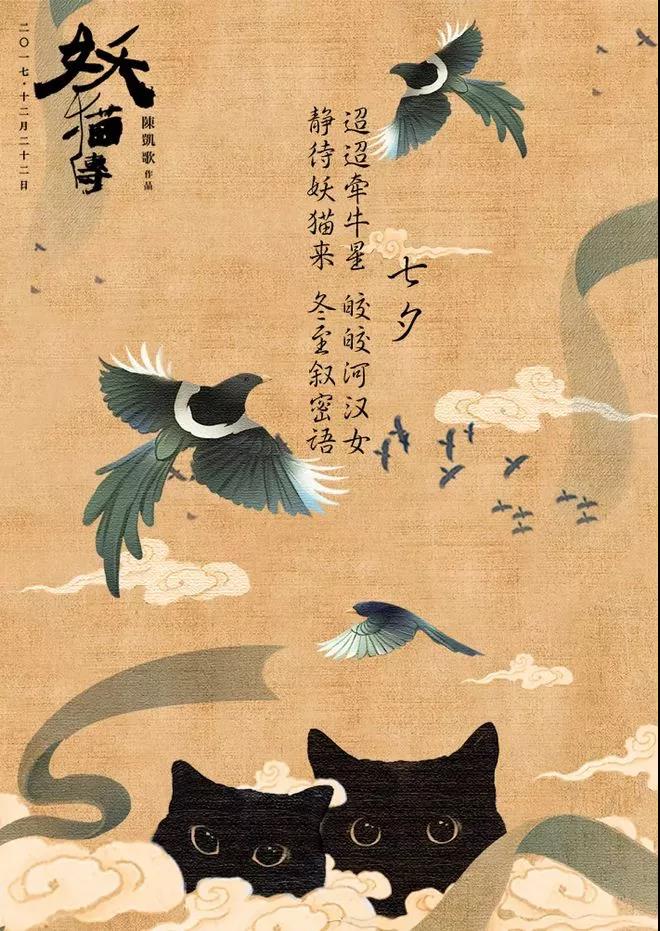 二〇一七·十二月二十二日
妖猫傳
陳凱歌
作品
七夕
迢迢牵牛星 皎皎河汉女
静待妖猫来 冬至叙密语